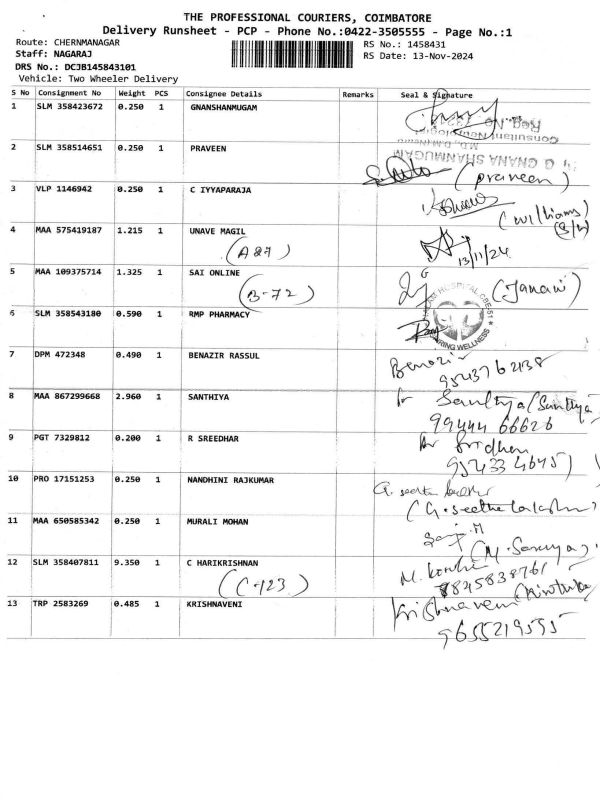 THE PROFESSIONAL COURIERS, COIMBATORE
Delivery Runsheet - PCP - Phone No.:0422-3505555 - Page No.:1
Route: CHERNMANAGAR
Staff: NAGARAJ
DRS No.: DCJB145843101
Vehicle: Two Wheeler Delivery
RS No.: 1458431
RS Date: 13-Nov-2024
S No Consignment No Weight PCS Consignee Details Remarks Seal & Signature
1 SLM 358423672 0.250 1 GNANSHANMUGAM
Reg.No.
Consultant Neurologist
G GNANA SHANMUGAM
2 SLM 358514651 0.250 1 PRAVEEN
(praveen)
3 VLP 1146942 0.250 1 C IYYAPARAJA
(Williams)
4 MAA 575419187 1.215 1 UNAVE MAGIL
(A87) 13/11/24
5 MAA 109375714 1.325 1 SAI ONLINE
(B-72) (Janani)
6 SLM 358543180 0.590 1 RMP PHARMACY
HOSPITAL CBE-51
WELLNESS
7 DPM 472348 0.490 1 BENAZIR RASSUL
Benazir
9543762138
8 MAA 867299668 2.960 1 SANTHIYA
99444 66626
9 PGT 7329812 0.200 1 R SREEDHAR
10 PRO 17151253 0.250 1 NANDHINI RAJKUMAR
11 MAA 650585342 0.250 1 MURALI MOHAN
(M. Saranya)
12 SLM 358407811 9.350 1 C HARIKRISHNAN
(C-123) 8845838761
13 TRP 2583269 0.485 1 KRISHNAVENI
Krishnaveni
9655219595